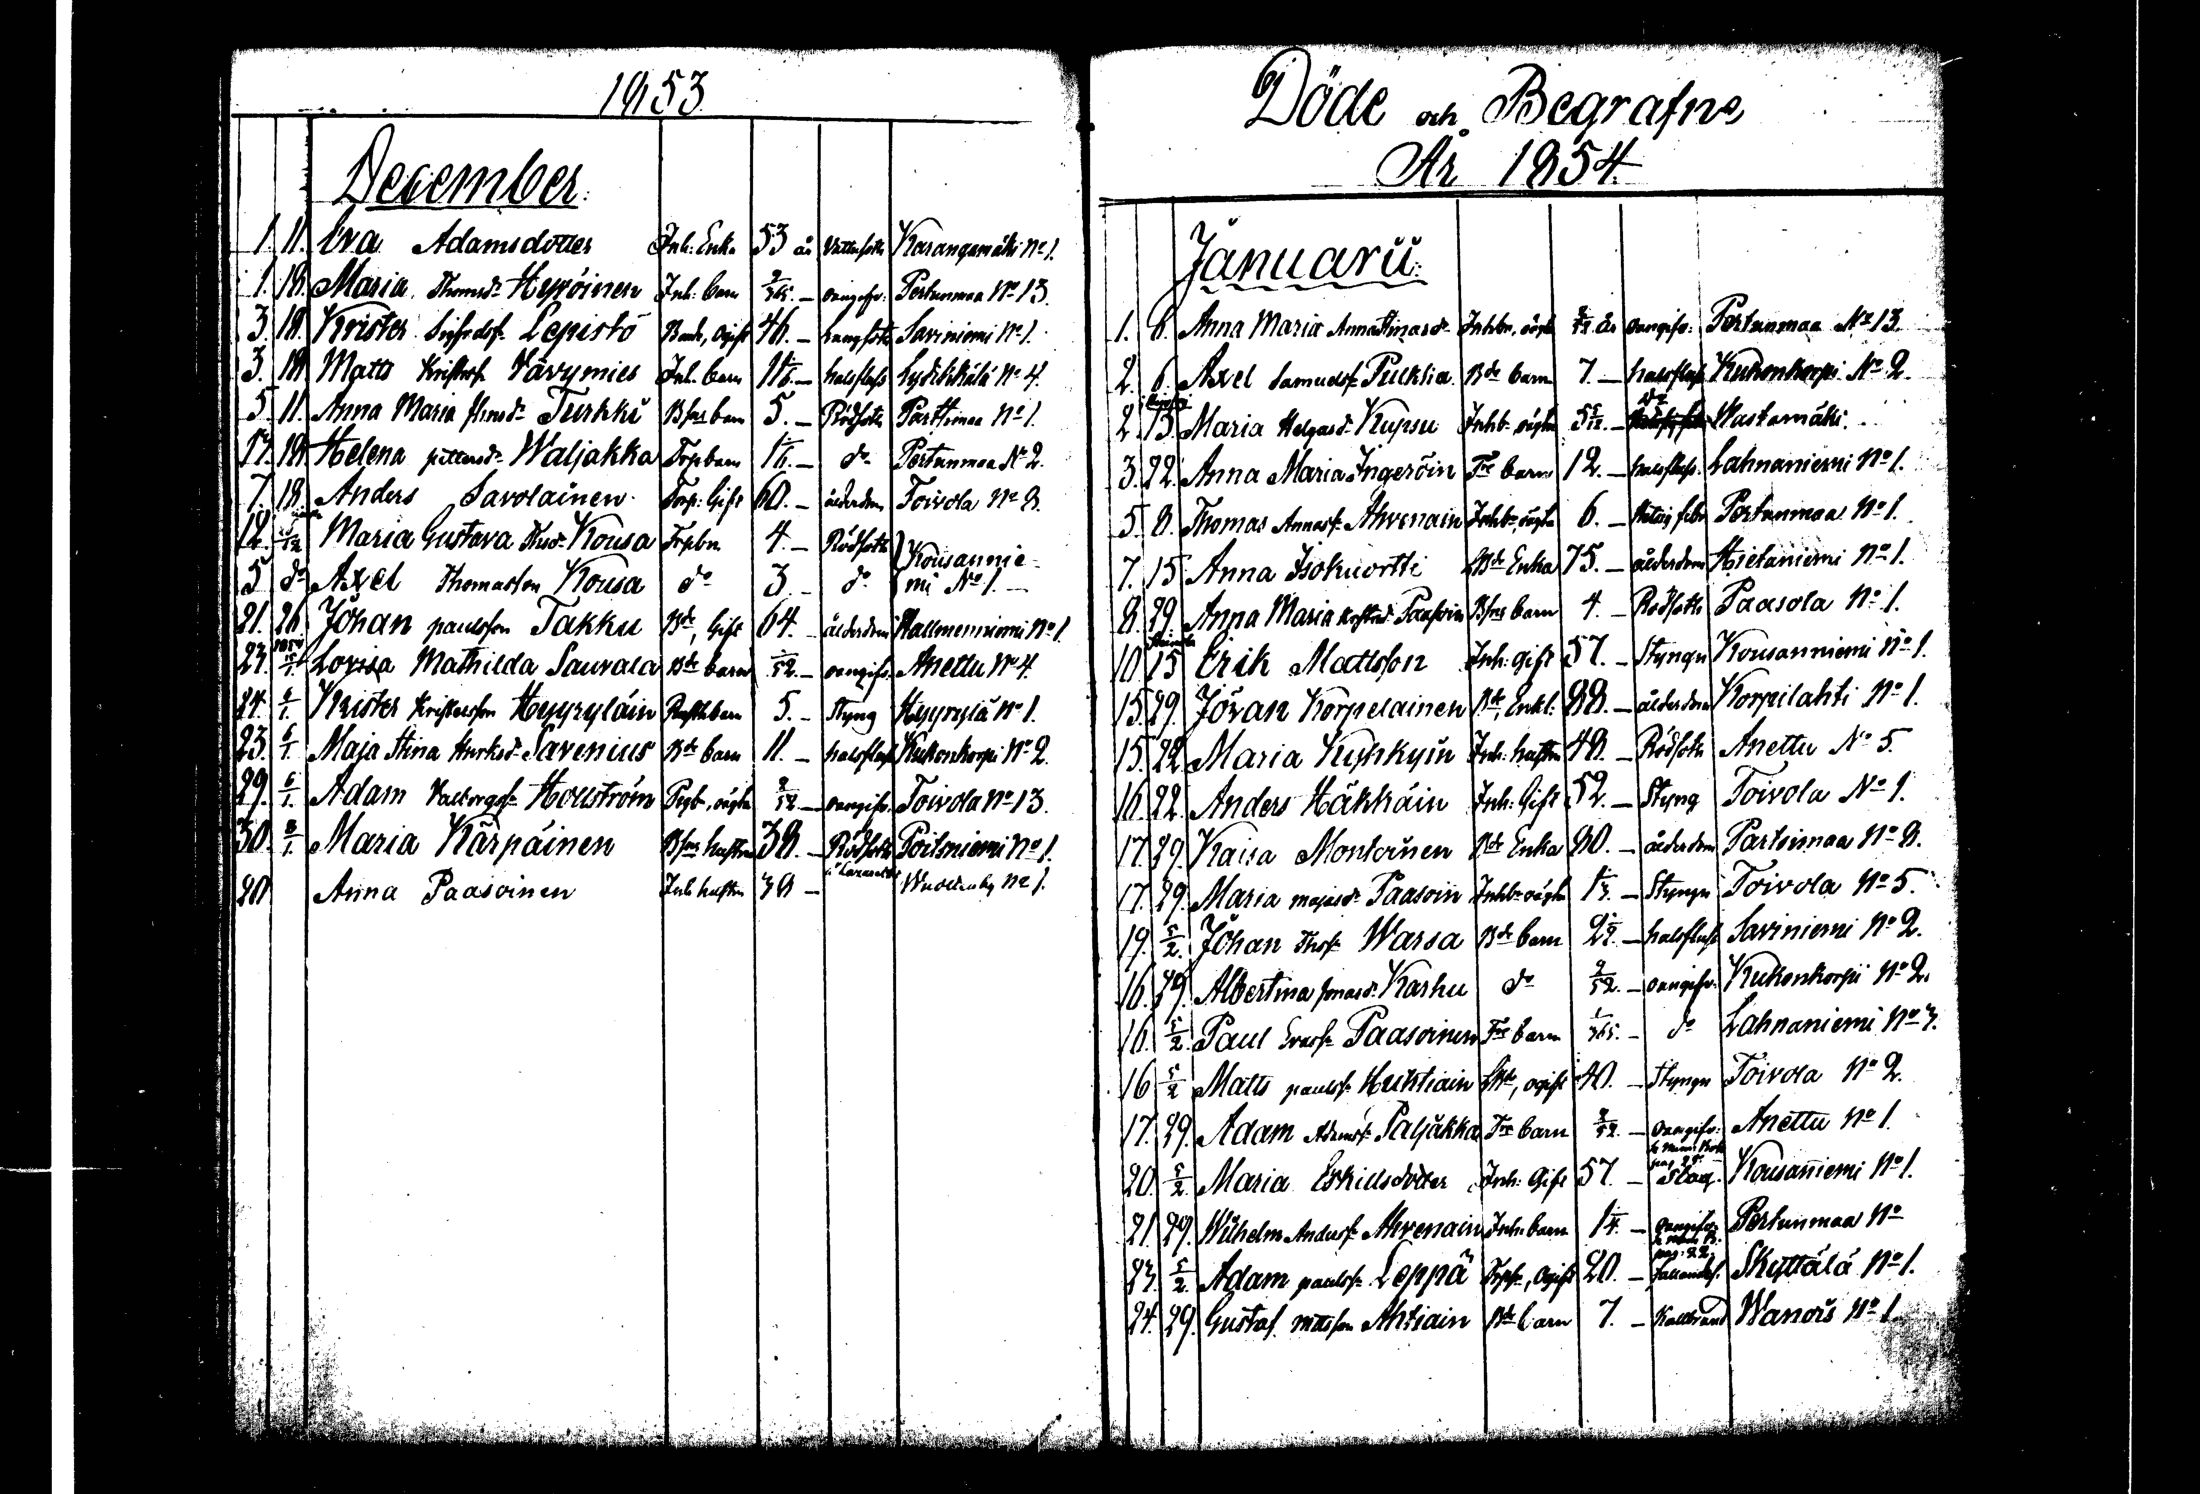 1853
December.
1. 11. Eva Adamsdotter Inh: Enka 53 år Vattusot Karangamäki No 1.
1. 18. Maria Thomsdr Hyvöinen Inh: barn 2/365. – oangifv: Pertunmaa No 13.
3. 18. Krister Lepistö Bonde, ogift 46. – Lungsot Saviniemi No 1.
3. 18. Matts Kristers. Vävymies Inh. barn – halsfluss No 4.
5. 11. Anna Maria Turkki Bfns barn 5. – Rödsot Parttimaa No 1.
17. 18. Helena pettersdr Waljakka Torpbarn – do Pertunmaa No 2.
7. 18. Anders Savolainen Torp: Gift 60. – ålderdom Toivola No 8.
12. Maria Gustava Kousa Torpbn 4. – Rödsot } Kousannie-
5 do Axel Thomasson Kousa do 3 – do mi No 1. –
21. 26 Johan paulsson Takku Bde, Gift 64. – ålderdom Hallmenniemi No 1.
27. 1854 Lovisa Mathilda Sauvala Bde barn /52. – oangifv. Anettu No 4.
24. 6/1. Krister Kristersson Hyyryläin barn 5. – Styng Hyyrylä No 1.
23. 6/1. Maja Stina Savenius Bde barn 11. – halsfluss Kukonkorpi No 2.
29. 6/1. Adam Valborgss. Hollström oägta 2/52 – oangifv. Toivola No 13.
30. 8/1. Maria Kärpäinen Bfns hustru 38. – Rödsot Poitoniemi No 1.
20 Anna Paasoinen Inh hustru 38 – i Lazarettet No 1.
Döde och Begrafne
År 1854.
Januarii.
1. 6. Anna Maria AnnaStinasdr Inhbn, oägta /12 år oangifv: Pertunmaa No 13.
2. 6. Axel Samuelss. Pulkkia Bde barn 7. – halsfluss Kukonkorpi No 2.
2. 15. Maria Helgasdr Kupsu Inhb. oägta – do Wastamäki.
3. 22. Anna Maria Ingeröin Tre barn 12. – halsfluss. Lahnaniemi No 1.
5. 8. Thomas Annass. Ahvenain Inhbn, oägta 6. – Hetsig feber Pertunmaa No 1.
7. 15 Anna Isokuortti Bde Enka 75. – ålderdom Hietaniemi No 1.
8. 29. Anna Maria Paasoin Bfns barn 4. – Rödsot Paasola No 1.
10 15 Erik Mattsson Inh: gift 57. – Styngn Kousanniemi No 1.
15. 29. Jöran Korpelainen Bde, Enkl: 88. – ålderdom Korpilahti No 1.
15. 22. Maria Kuhkyin Inh: hustru 48. – Rödsot Anettu No 5.
16. 22. Anders Häkkäin Inh: Gift 52. – Styng Toivola No 1.
17. 29. Kaisa Montoinen Bde Enka 80. – ålderdom Partsimaa No 8.
17. 29. Maria majasdr Paasoin Inhbn oägta 1/3. – Styngn Toivola No 5.
19. 5/2. Johan Thoss. Warsa Bde barn – halsfluss Saviniemi No 2.
16. 29. Albertina jonasdr Karhu do 2/52. – oangifv. Kukonkorpi No 2.
16. 5/2. Paul Evass. Paasoinen Tre barn 1/365. – do Lahnaniemi No 3.
16 5/2 Matts paulss. Huhtiain Bde, ogift 40. – Styngn Toivola No 2.
17. 29. Adam Adamss. Paljakka Tre barn /52. – oangifv: Anettu No 1.
20. 5/2. Maria Eskillsdotter Inh: Gift 57. – Slag. Kousaniemi No 1.
21. 29. Wilhelm Anderss. Ahvenain Inh: barn 1/4. – oangifv: Pertunmaa No
23. 5/2. Adam paulss. Leppä Torps., Ogift 20. – Fallandes. Skyttälä No 1.
24. 29. Gustaf mattsson Ahtiain Bde barn 7. – Kallbrand Wanois No 1.